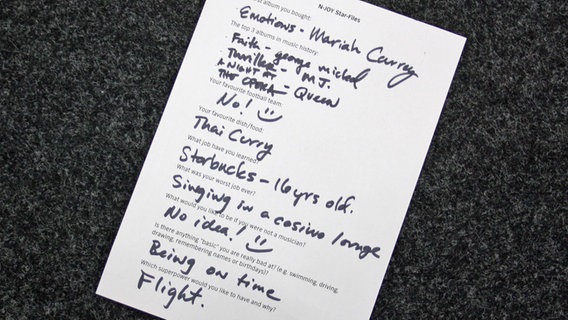 N-JOY Star-Files
first album you bought:
Emotions - Mariah Carey
The top 3 albums in music history:
Faith - george michael
Thriller - M.J.
A NIGHT AT THE OPERA - Queen
Your favourite football team:
No! :)
Your favourite dish/food:
Thai Curry
What job have you learned:
Starbucks - 16 yrs old.
What was your worst job ever?
Singing in a casino lounge
What would you like to be if you were not a musician?
No idea! :)
Is there anything "basic" you are really bad at? (e.g. swimming, driving,
drawing, remembering names or birthdays)?
Being on time
Which superpower would you like to have and why?
Flight.